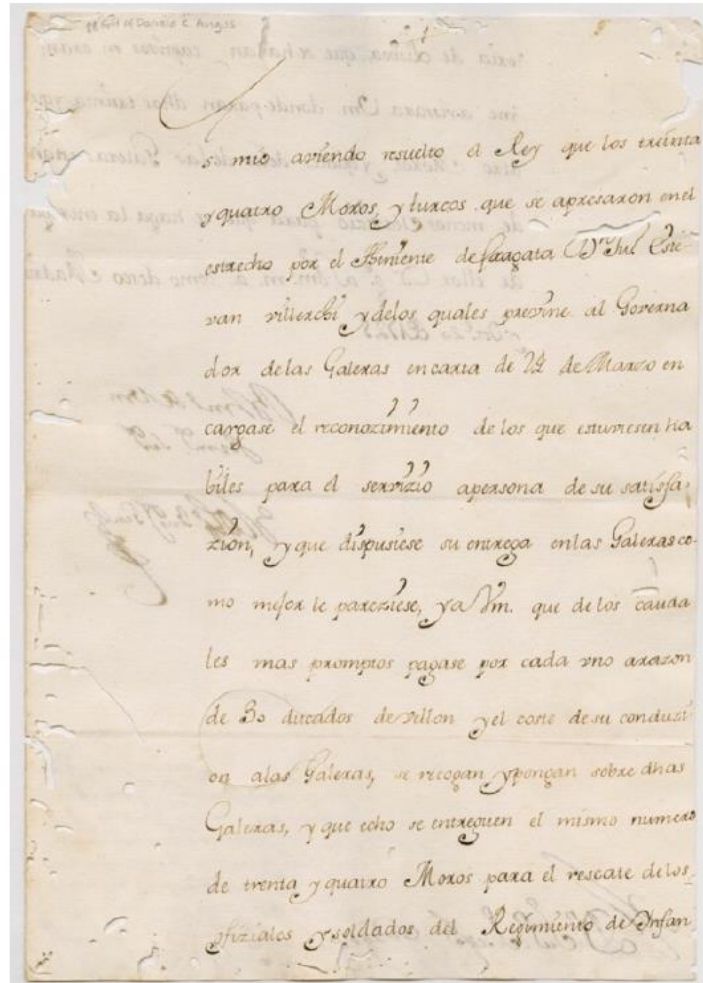 s. mio aviendo resuelto el Rey que los treinta
y quatro Moros, y turcos que se apresaron en el
estrecho por el theniente de fragata Dn Jul Este-
van villerchi y delos quales previne al Governa
dor delas Galeras en carta de 24 de Marzo en
cargase el reconozimiento de los que estuviesen ha
biles para el servizio apersona de su satisfa-
zión, y que dispusiese su entrega enlas Galeras co-
mo mejor le pareziese, ya Vm. que de los cauda
les mas promptos pagase por cada vno arazon
de 30 ducados de vellon y el coste de su conduzi-
on alas Galeras, se recogan y pongan sobre dhas
Galeras, y que echo se entreguen el mismo numero
de trenta y quatro Moros para el rescate de los
ofiziales y soldados del Regimiento de Infan